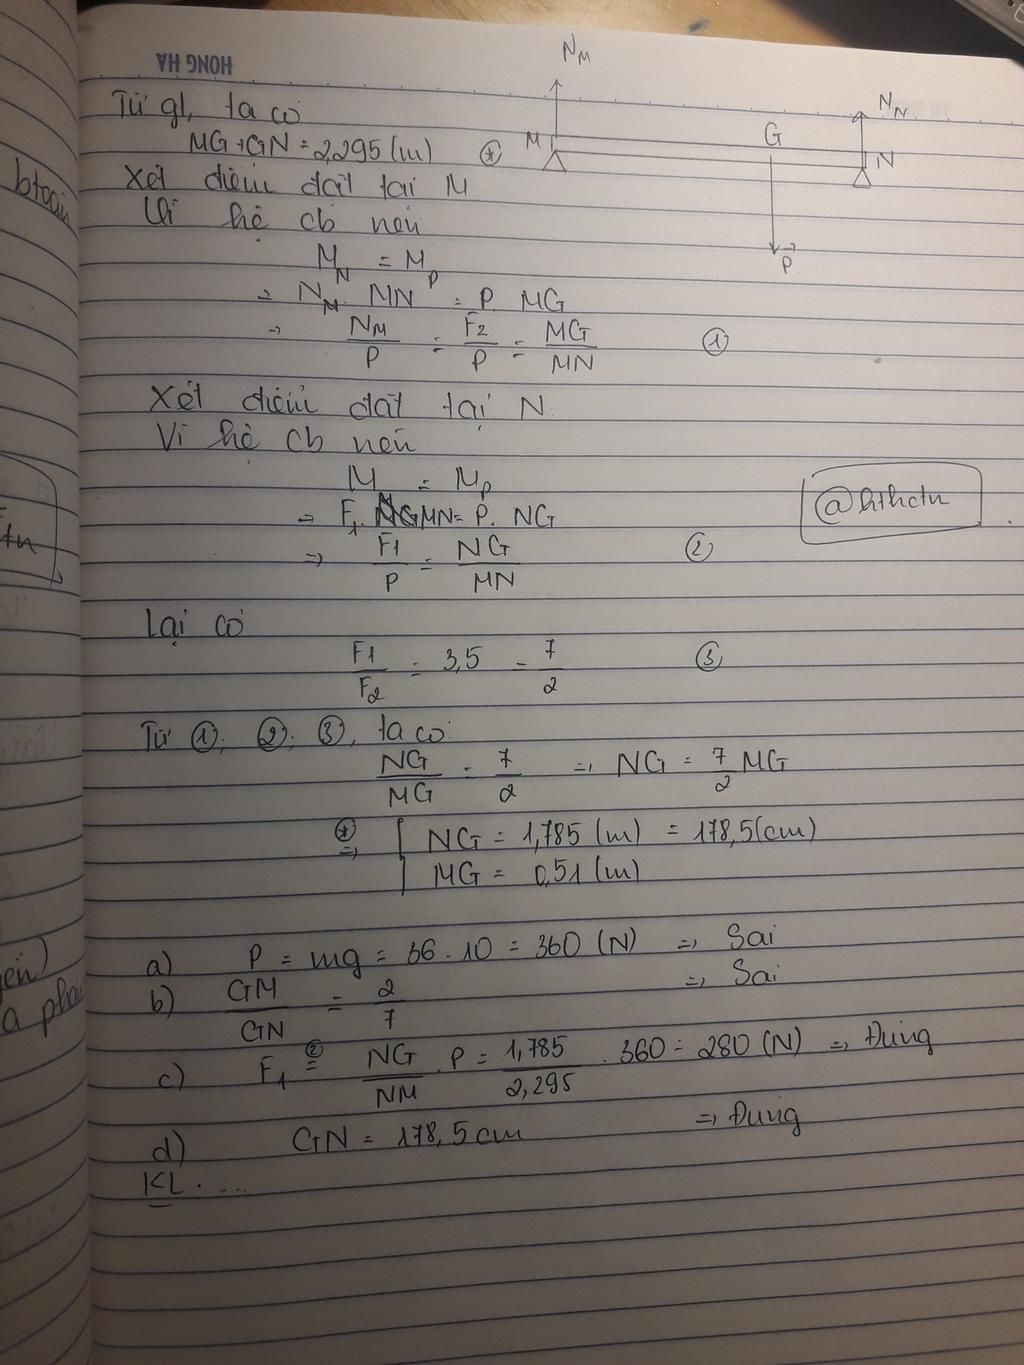 HONG HA
N_M
Từ gt, ta có
MG + GN = 2,295 (m) (*)
M
G
N_N
N
P
Xét điểm đặt tại M
Vì hệ cb nên
M_N = M_P
⇒ N_M. MN = P. MG
⇒ N_M/P = F2/P = MG/MN (1)
Xét điểm đặt tại N
Vì hệ cb nên
M = M_P
⇒ F_1. MN = P. NG
⇒ F1/P = NG/MN (2)
@hthctn
Lại có
F1/F2 = 3,5 = 7/2 (3)
Từ (1); (2); (3), ta có:
NG/MG = 7/2 ⇒ NG = 7/2 MG
(*) ⇒ { NG = 1,785 (m) = 178,5(cm)
MG = 0,51 (m)
a) P = mg = 36 . 10 = 360 (N) ⇒ Sai
b) GM/GN = 2/7 ⇒ Sai
c) F_1 (2)= NG/NM . P = 1,785/2,295 . 360 = 280 (N) ⇒ Đúng
d) GN = 178,5 cm ⇒ Đúng
KL: ...
btoán